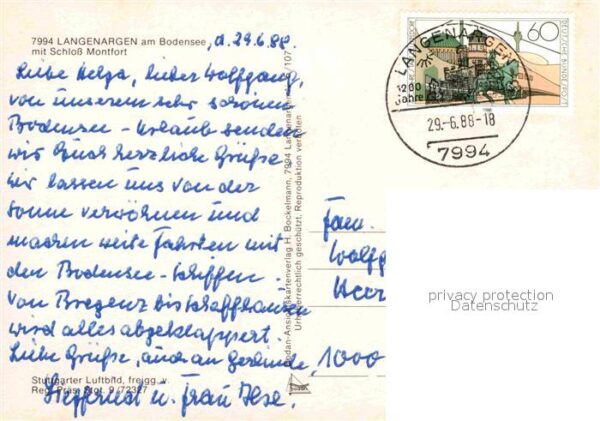 7994 LANGENARGEN am Bodensee, d. 29.6.88.
mit Schloß Montfort
Liebe Helga, lieber Wolfgang,
von unserem sehr schönen
Bodensee-Urlaub senden
wir Euch herzliche Grüße.
Wir lassen uns von der
Sonne verwöhnen und
machen weite Fahrten mit
den Bodensee-Schiffen.
Von Bregenz bis Schaffhausen
wird alles abgeklappert.
Liebe Grüße, auch an Gerlinde,
Siegfried u. Frau Ilse.
Stuttgarter Luftbild, freigg. v.
Reg. Präs. Stgt. 9 /72327
Bodan-Ansichtskartenverlag H. Bockelmann, 7994 Langenargen /107
Urheberrechtlich geschützt, Reproduktion verboten
60
DEUTSCHE BUNDESPOST
LANGENARGEN
1200
Jahre
29.-6.88-18
7994
Fam.
Wolfg
1000
privacy protection
Datenschutz